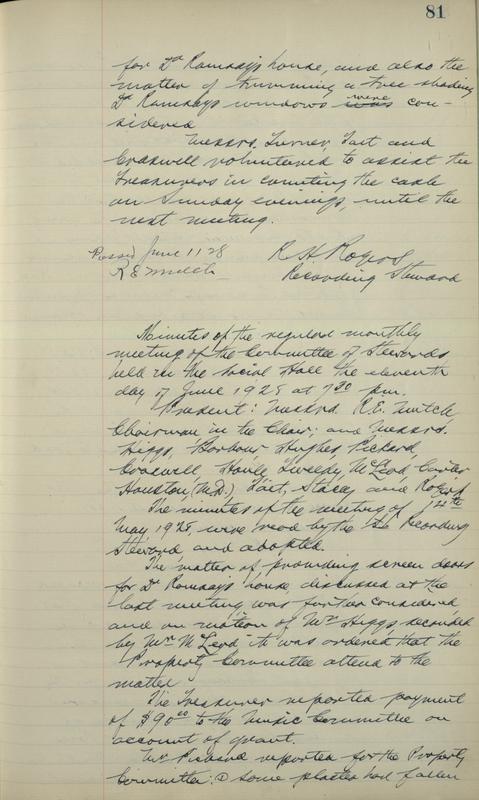 81
for Dr Ramsay's house, and also the
matter of trimming a tree shading
Dr Ramsay's windows were con-
sidered
Messrs. Turner, Tait and
Craswell volunteered to assist the
Treasurers in counting the cash
on Sunday evenings, until the
next meeting.
Passed June 11 28
R E Mutch
R H Rogers
Recording Steward
Minutes of the regular monthly
meeting of the Committee of Stewards
held in the Social Hall the eleventh
day of June 1928 at 7:30 pm.
Present: Messrs R.E. Mutch
Chairman in the Chair; and Messrs.
Higgs, Barbour, Hughes, Pickard,
Craswell, Howe, Tweedy, McLeod, Carter
Houston (M.D.) Tait, Stacey and Rogers
The minutes of the meeting of 14th
May 1928, were read by the Recording
Steward and adopted.
The matter of providing screen doors
for Dr Ramsay's house, discussed at the
last meeting was further considered,
and on motion of Mr Higgs seconded
by Mr McLeod it was ordered that the
Property Committee attend to the
matter
The Treasurer reported payment
of $90.00 to the Music Committee on
account of grant.
Mr Pickard reported for the Property
Committee: ① some plaster had fallen